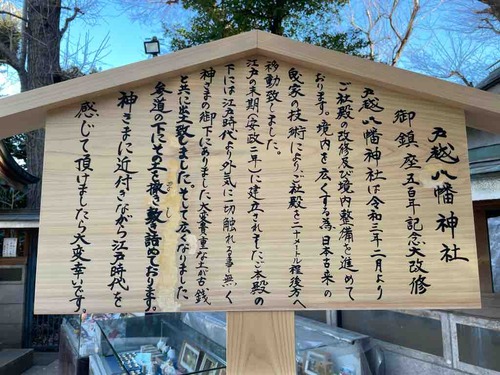 戸越八幡神社
御鎮座五百年記念大改修
戸越八幡神社は令和三年二月より
ご社殿の改修及び境内整備を進めて
おります。境内を広くする為、日本古来の
曳家の技術によりご社殿を二十メートル程後方へ
移動致しました。
江戸の末期(安政二年)に建立されました御本殿の
下には江戸時代より外気に一切触れる事無く
神さまの御下にありました大変貴重な土が古銭
と共に生じ致しました。そして広くなりました
参道の下にその土を敷き詰めております。
神さまに近付きながら江戸時代を
感じて頂けましたら大変幸いです。